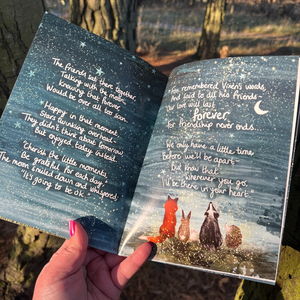 The friends sat there together,
Talking with the moon,
Knowing that forever
Would be over all too soon.
Happy in that moment,
Stars twinkling overhead,
They didn't think about tomorrow
But enjoyed today instead.
"Cherish the little moments,
Be grateful for each day,"
The moon knelt down and whispered,
"It's going to be ok."
Fox remembered Vixen's words,
And said to all his friends
"Our love will last
Forever,
For friendship never ends.
We only have a little time
Before we'll be apart
But know that
wherever you go,
I'll be there in your heart."